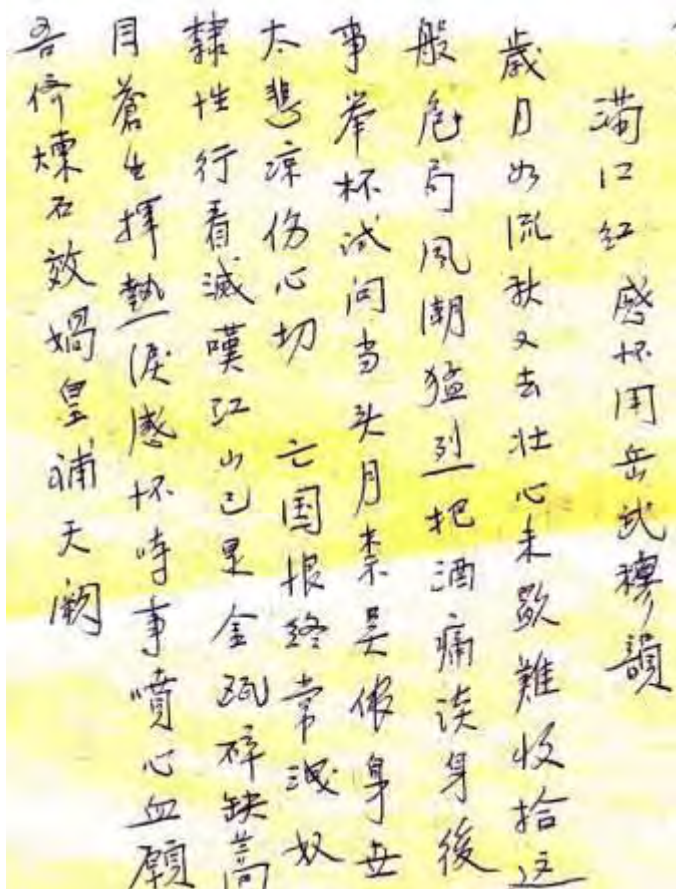 满江红 感怀用岳武穆韻
歲月如流秋又去壮心未歇難收拾这
般危局風潮猛烈把酒痛谈身後
事举杯试问当头月柰吴侬身世
太悲凉伤心切 亡国恨终常洩奴
隸性行看滅嘆江山已是金瓯碎缺蒿
目蒼生揮熱淚感怀時事噴心血願
吾侪煉石效媧皇補天阙